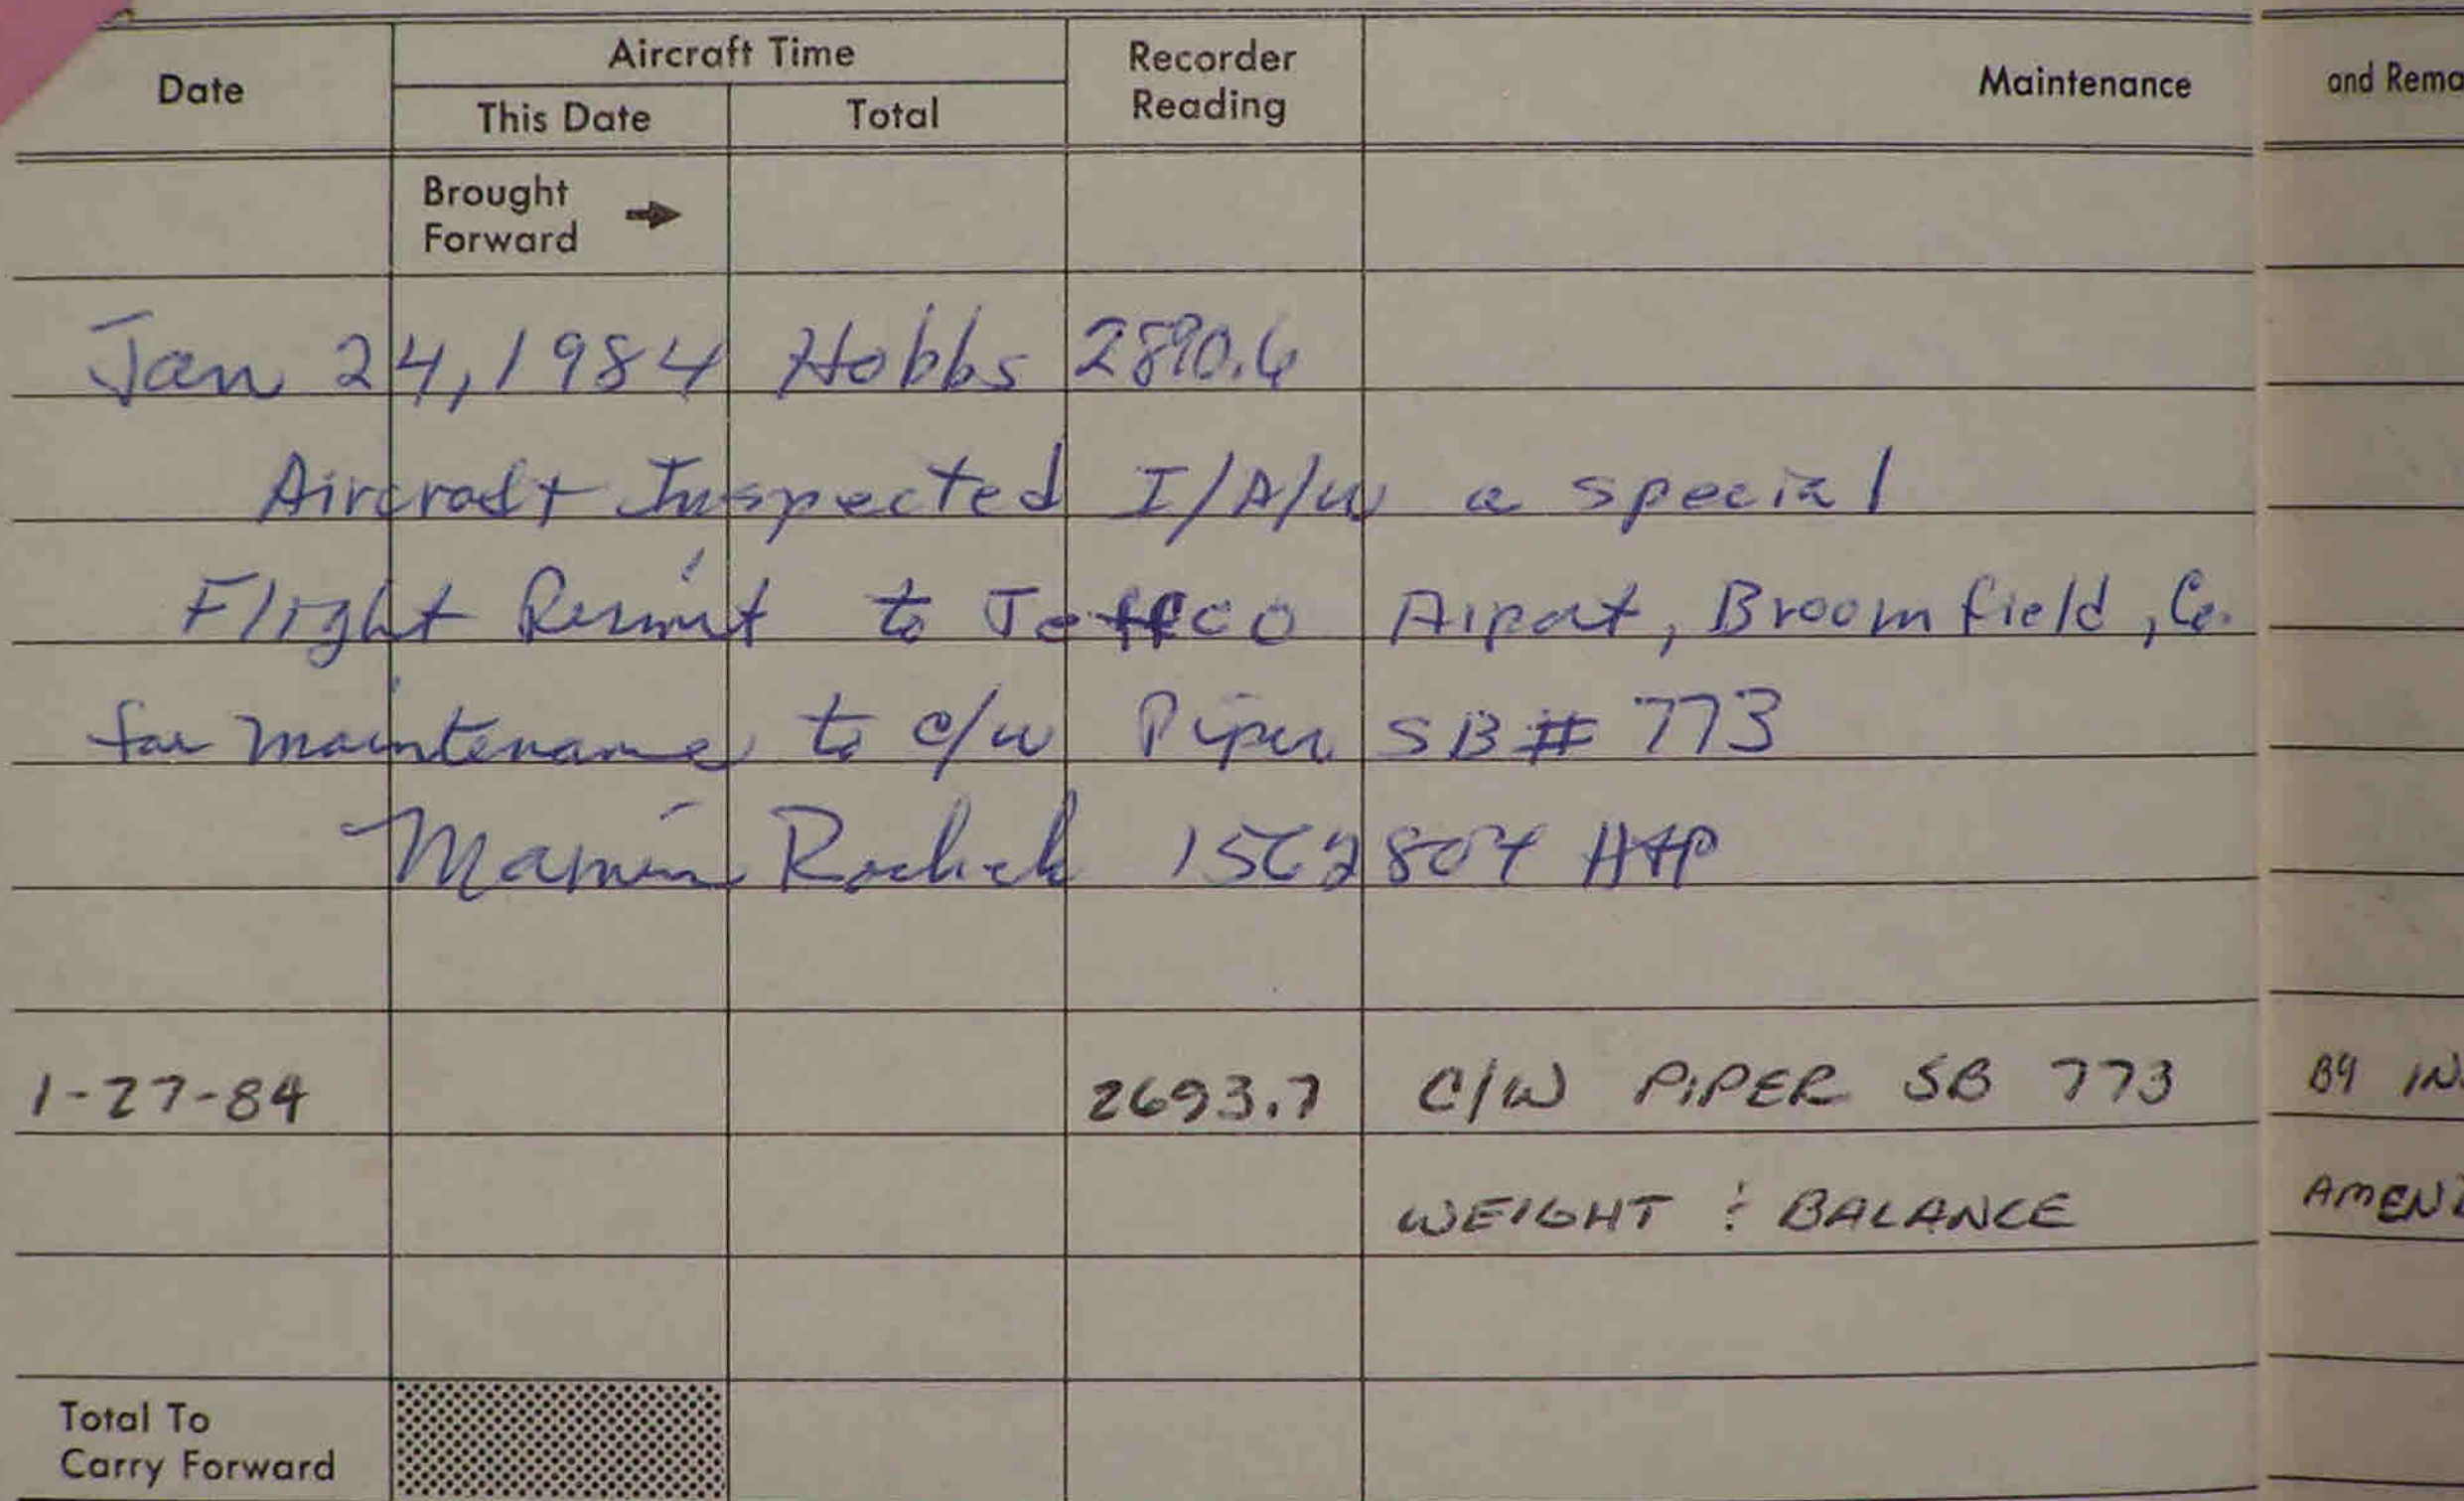 Date Aircraft Time Recorder Reading Maintenance and Rema
This Date Total
Brought Forward
Jan 24, 1984 Hobbs 2890.6
Aircraft Inspected I/A/W a special
Flight Permit to Jeffco Aiport, Broomfield, Co.
for maintenance to c/w Piper SB # 773
1562804 A&P
1-27-84 2693.7 C/W PIPER SB 773 BY IN
WEIGHT & BALANCE AMEND
Total To
Carry Forward